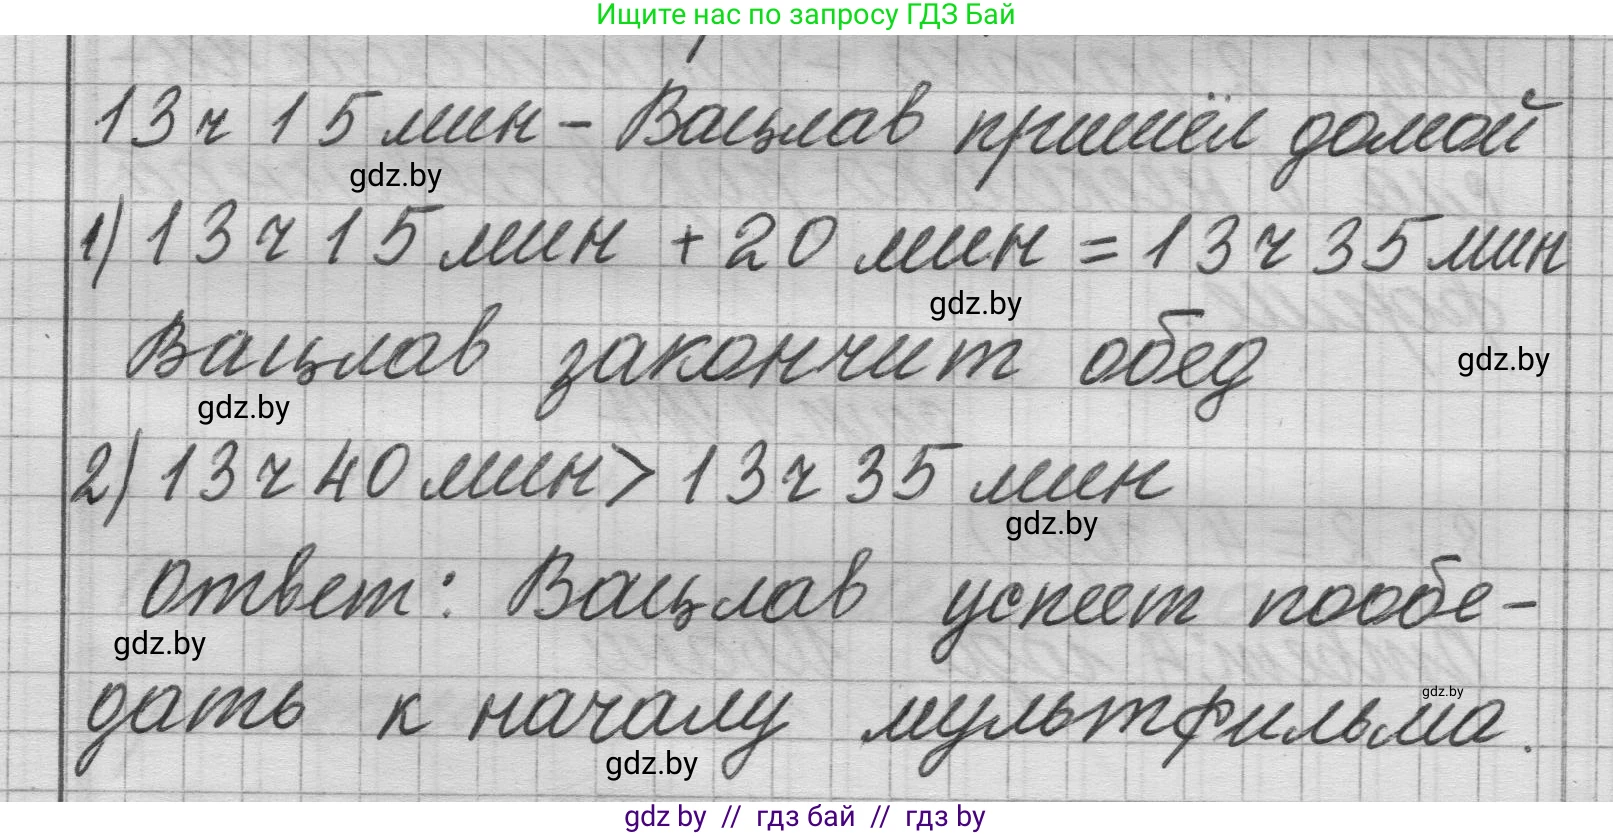 Ищите нас по запросу ГДЗ Бай
13 ч 15 мин - Вацлав пришёл домой
gdz.by
1) 13 ч 15 мин + 20 мин = 13 ч 35 мин
gdz.by
Вацлав закончит обед
gdz.by
gdz.by
2) 13 ч 40 мин > 13 ч 35 мин
gdz.by
Ответ: Вацлав успеет пообе-
gdz.by
дать к началу мультфильма.
gdz.by
gdz.by
gdz.by // гдз бай // гдз by